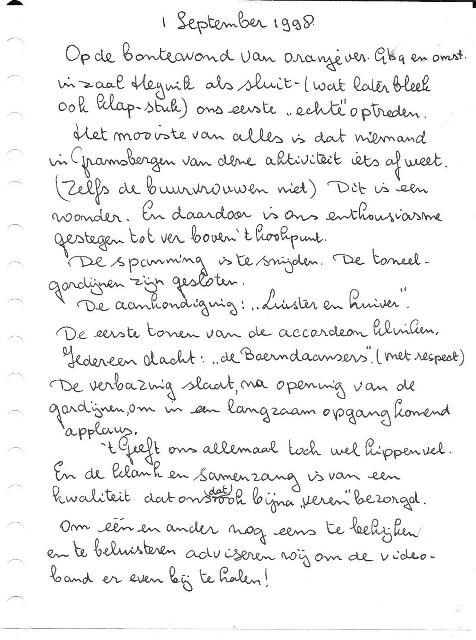 1 September 1998
Op de bonteavond van oranjever. Gbg en omst.
in zaal Heynik als sluit-(wat later bleek
ook klap-stuk) ons eerste „echte" optreden.
Het mooiste van alles is dat niemand
in Gramsbergen van deze aktiviteit iets af weet.
(Zelfs de buurvrouwen niet) Dit is een
wonder. En daardoor is ons enthousiasme
gestegen tot ver boven 't kookpunt.
De spanning is te snijden. De toneel-
gordijnen zijn gesloten.
De aankondiging: „Luister en huiver".
De eerste tonen van de accordeon klinken.
Iedereen dacht: „de Baerndaansers". (met respect)
De verbazing slaat, na opening van de
gordijnen, om in een langzaam opgang komend
applaus.
't Geeft ons allemaal toch wel kippenvel.
En de klank en samenzang is van een
kwaliteit dat ons dat ook bijna „veren" bezorgd.
Om één en ander nog eens te bekijken
en te beluisteren adviseren wij om de video-
band er even bij te halen!